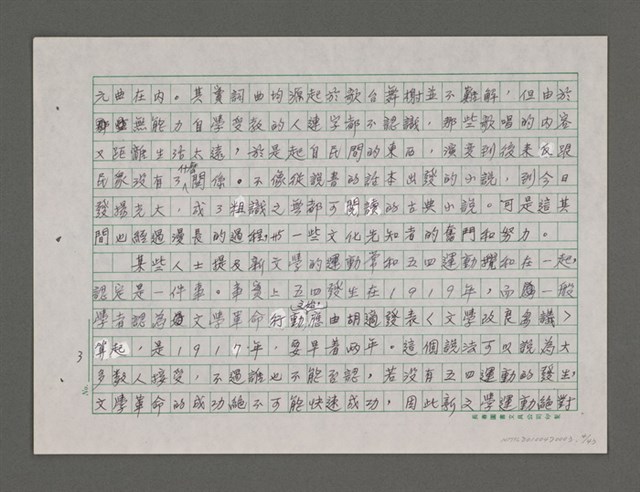 元曲在內。其實詞曲均源起於歌台舞榭並不難解，但由於
無能力自學受教的人連字都不認識，那些歌唱的內容
又距離生活太遠，於是起自民間的東西，演變到後來反跟
民眾沒有了什麼關係。不像從說書的話本出發的小說，到今日
發揚光大，成了粗識之無都可閱讀的古典小說。可是這其
間也經過漫長的過程，一些文化先知者的奮鬥和努力。
某些人士提及新文學的運動常和五四運動攪和在一起，
認定是一件事。事實上五四發生在1919年，而一般
學者認為文學革命行動應由胡適發表〈文學改良芻議〉
算起，是1917年，要早著兩年。這個說法可以說為大
多數人接受，不過誰也不能否認，若沒有五四運動的發生，
文學革命的成功絕不可能快速成功，因此新文學運動絕對
3
No.